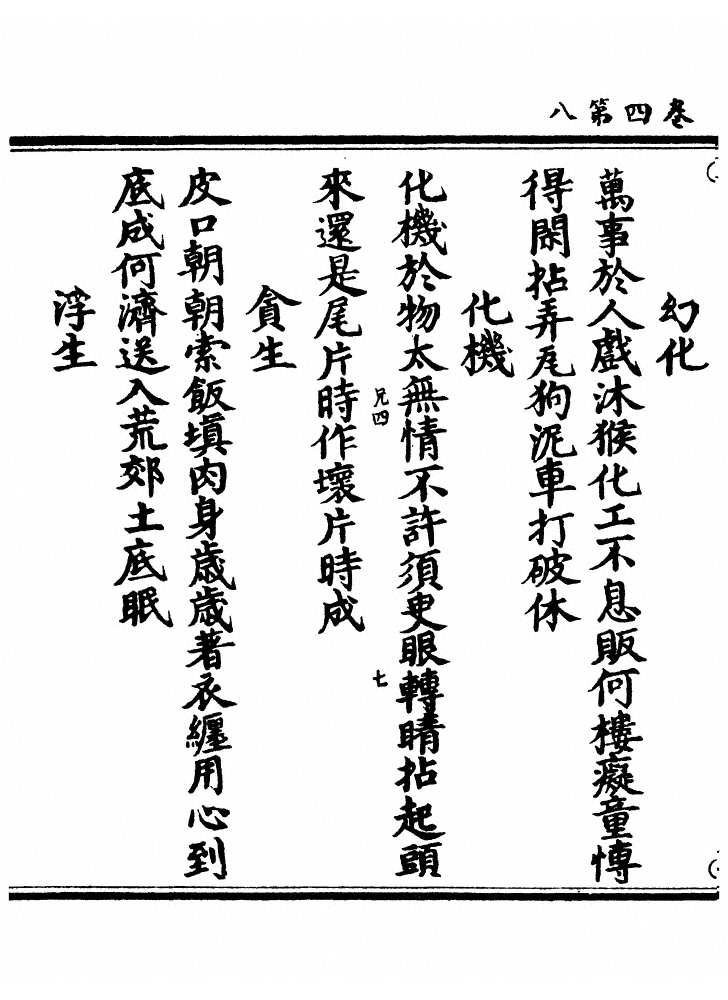 巻四第八
幻化
萬事於人戲沐猴化工不息販何樓癡童慱
得閑拈弄瓦狗泥車打破休
化機
化機於物太無情不許須臾眼轉睛拈起頭
兄四
七
來還是尾片時作壞片時成
貪生
皮口朝朝索飯填肉身歳歳著衣纏用心到
底成何濟送入荒郊土底眠
浮生